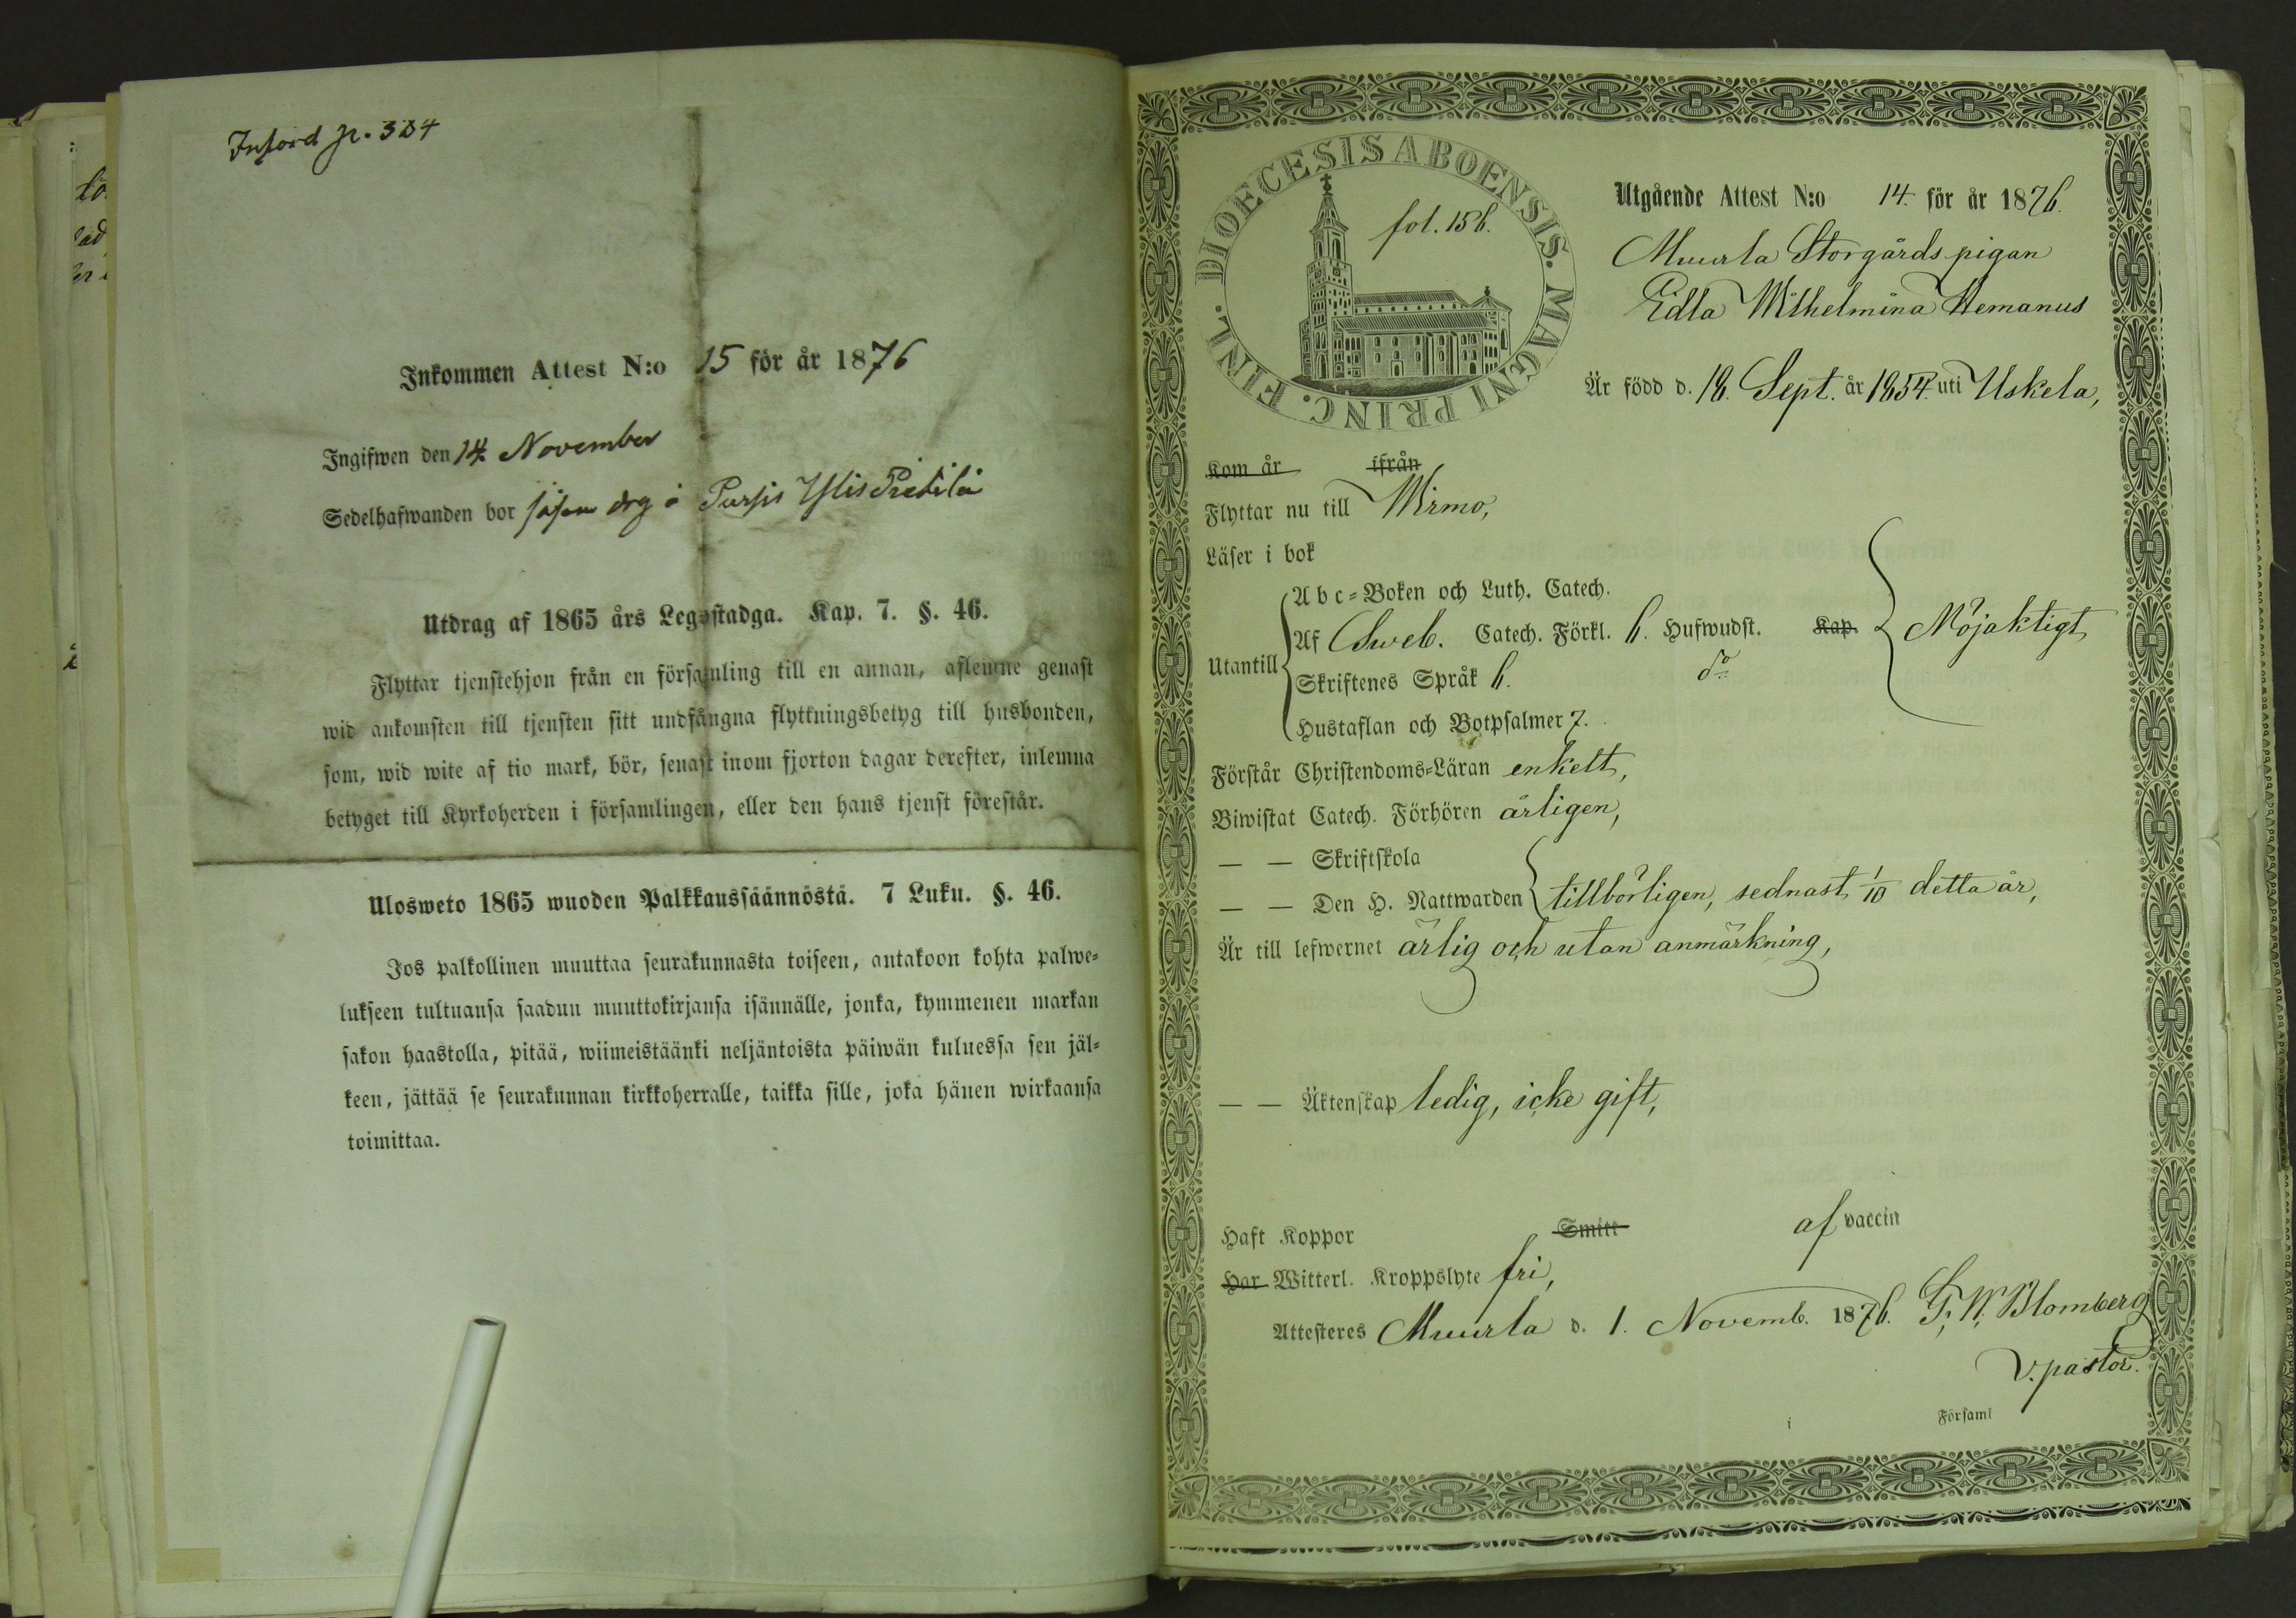 Införd p. 304
Inkommen Attest N:o 15 för år 1876
Ingifwen den 14 November
Sedelhafwanden bor
Utdrag af 1865 års Legostadga. Kap. 7. §. 46.
Flyttar tjenstehjon från en församling till en annan, aflemne genast
wid ankomsten till tjensten sitt undfångna flyttningsbetyg till husbonden,
som, wid wite af tio mark, bör, senast inom fjorton dagar derefter, inlemna
betyget till Kyrkoherden i församlingen, eller den hans tjenst förestår.
Ulosweto 1865 wuoden Palkkaussäännöstä. 7 Luku. §. 46.
Jos palkollinen muuttaa seurakunnasta toiseen, antakoon kohta palwe=
lukseen tultuansa saadun muuttokirjansa isännälle, jonka, kymmenen markan
sakon haastolla, pitää, wiimeistäänki neljäntoista päiwän kuluessa sen jäl=
keen, jättää se seurakunnan kirkkoherralle, taikka sille, joka hänen wirkaansa
toimittaa.
DIOECESIS ABOENSIS. MAGNI PRINC. FINL.
fol. 156.
Utgående Attest N:o 14. för år 1876.
Muurla Storgårds pigan
Edla Wilhelmina Hemanus
Är född d. 18. Sept. år 1854. uti Uskela,
Kom år ifrån
Flyttar nu till Wirmo,
Läser i bok
Utantill
Abc=Boken och Luth. Catech.
Af Sweb. Catech. Förkl. 6. Hufwudst. Kap.
Skriftenes Språk 6. do
Hustaflan och Botpsalmer 7.
Nöjaktigt
Förstår Christendoms=Läran enkelt,
Biwistat Catech. Förhören årligen,
— — Skriftskola
— — Den H. Nattwarden tillbörligen, sednast 1/10 detta år,
Är till lefwernet ärlig och utan anmärkning,
— — Äktenskap ledig, icke gift,
Haft Koppor Smitt af vaccin
Har Witterl. Kroppslyte fri,
Attesteres Muurla d. 1. Novemb. 1876. F. W. Blomberg
V. pastor.
i Församl